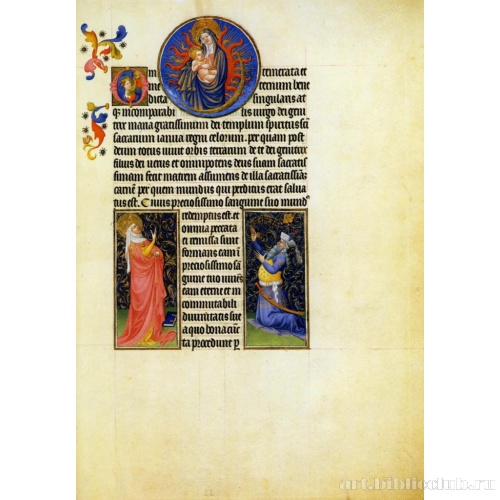 O in temerata et
ternum bene
dicta singularis at
qꝫ incomparabi lis uirgo dei geni
trix maria gratissimum dei templum spiritus sci
sacrarium ianua regni celorum. per quam post
deum totus uiuit orbis terrarum de te dei genitrix
filius dei uerus et omnipotens deus suam sacratis
simam fecit matrem assumens de illa sacratissima
carnem per quem mundus qui perditus erat salua
tus est. Cuius preciosissimo sanguine suo mund
redemptus est. et
omnia peccata
et remissa sunt
formans eam i
preciosissimo sa
guine tuo
eam eterne et in
commutabili
diuinitatis sue
a quo bona cu
cta procedunt p
art.biblioclub.ru